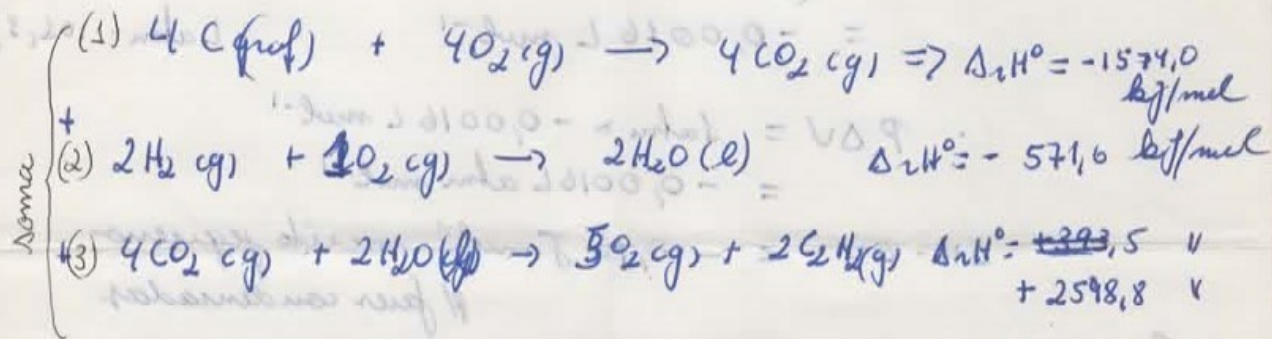 (1) 4 C (graf) + 4O₂ (g) → 4 CO₂ (g) => ΔrH° = -1574,0
kJ/mol
+
(2) 2H₂ (g) + 1O₂ (g) → 2H₂O (l) ΔrH° = - 571,6 kJ/mol
+(3) 4CO₂ (g) + 2H₂O (l) → 5O₂ (g) + 2C₂H₂(g) ΔrH° = +393,5 "
+ 2598,8 "
soma